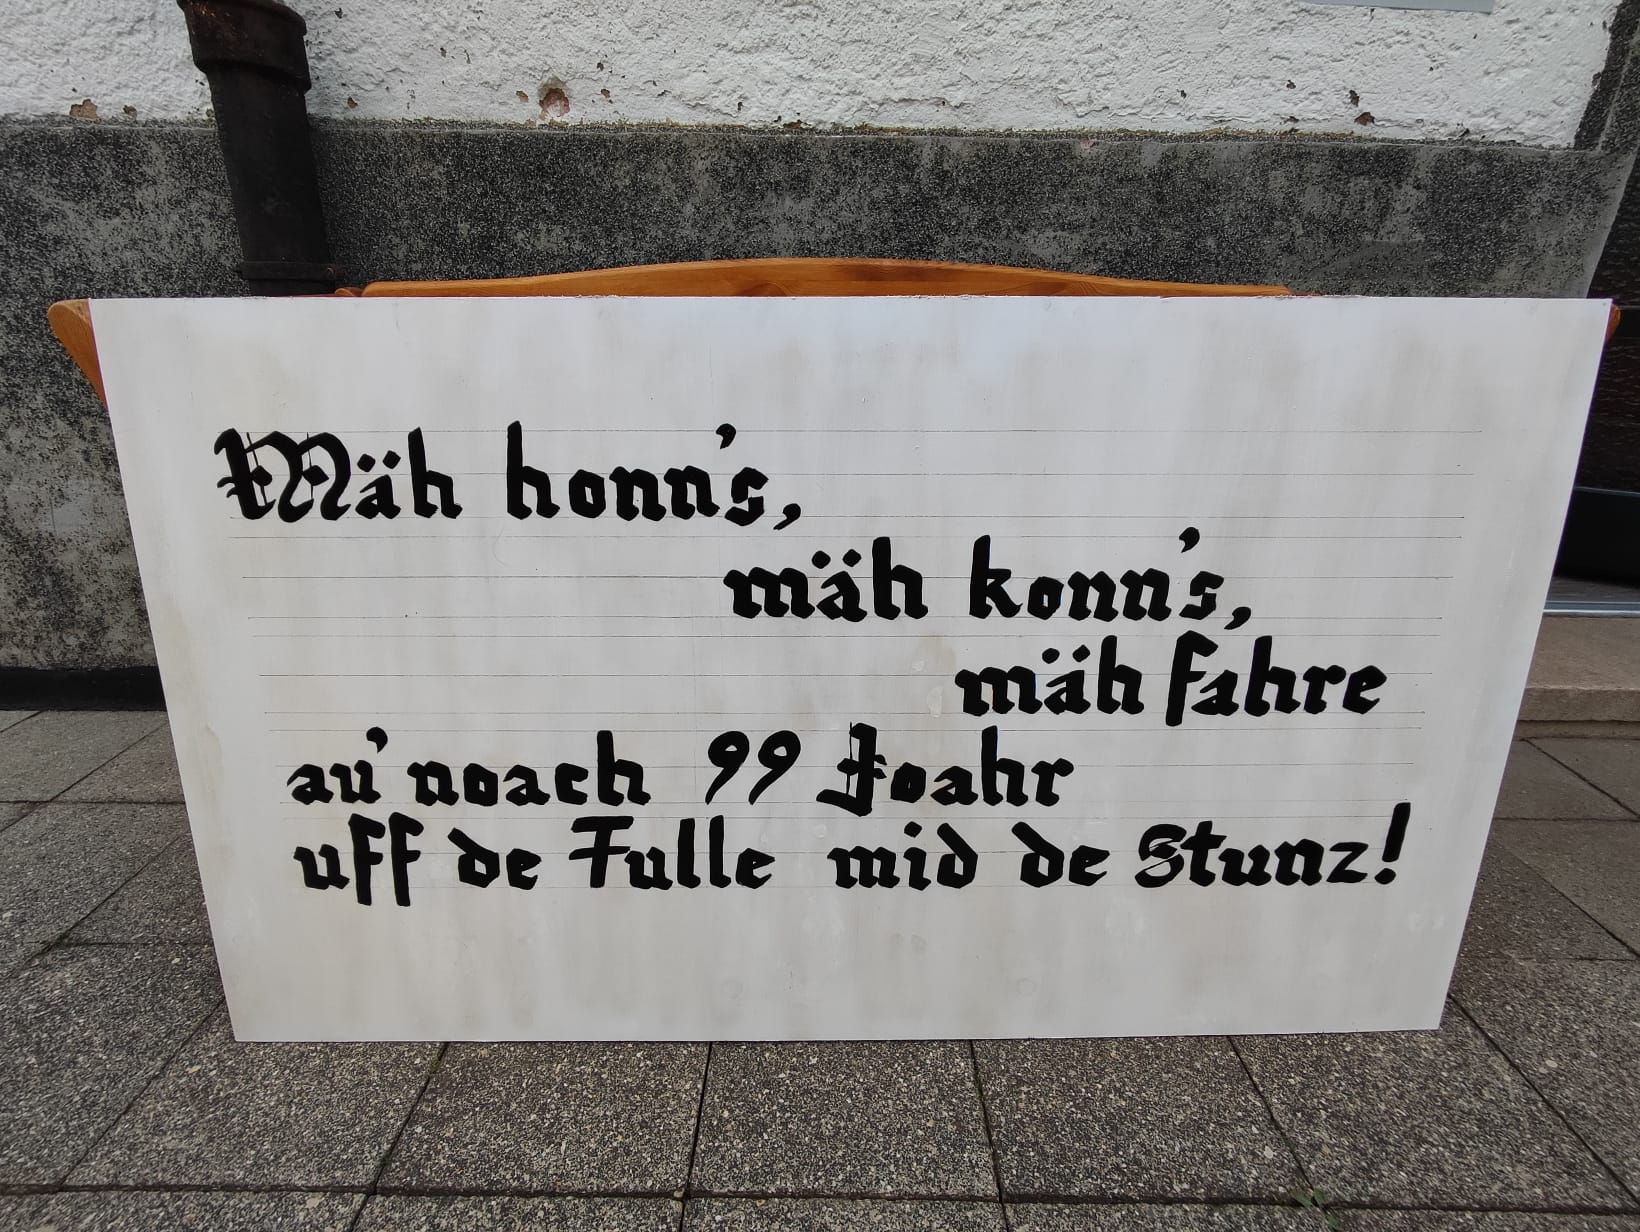 Mäh honn's,
mäh konn's,
mäh fahre
au' noach 99 Joahr
uff de Fulle mid de Stunz!